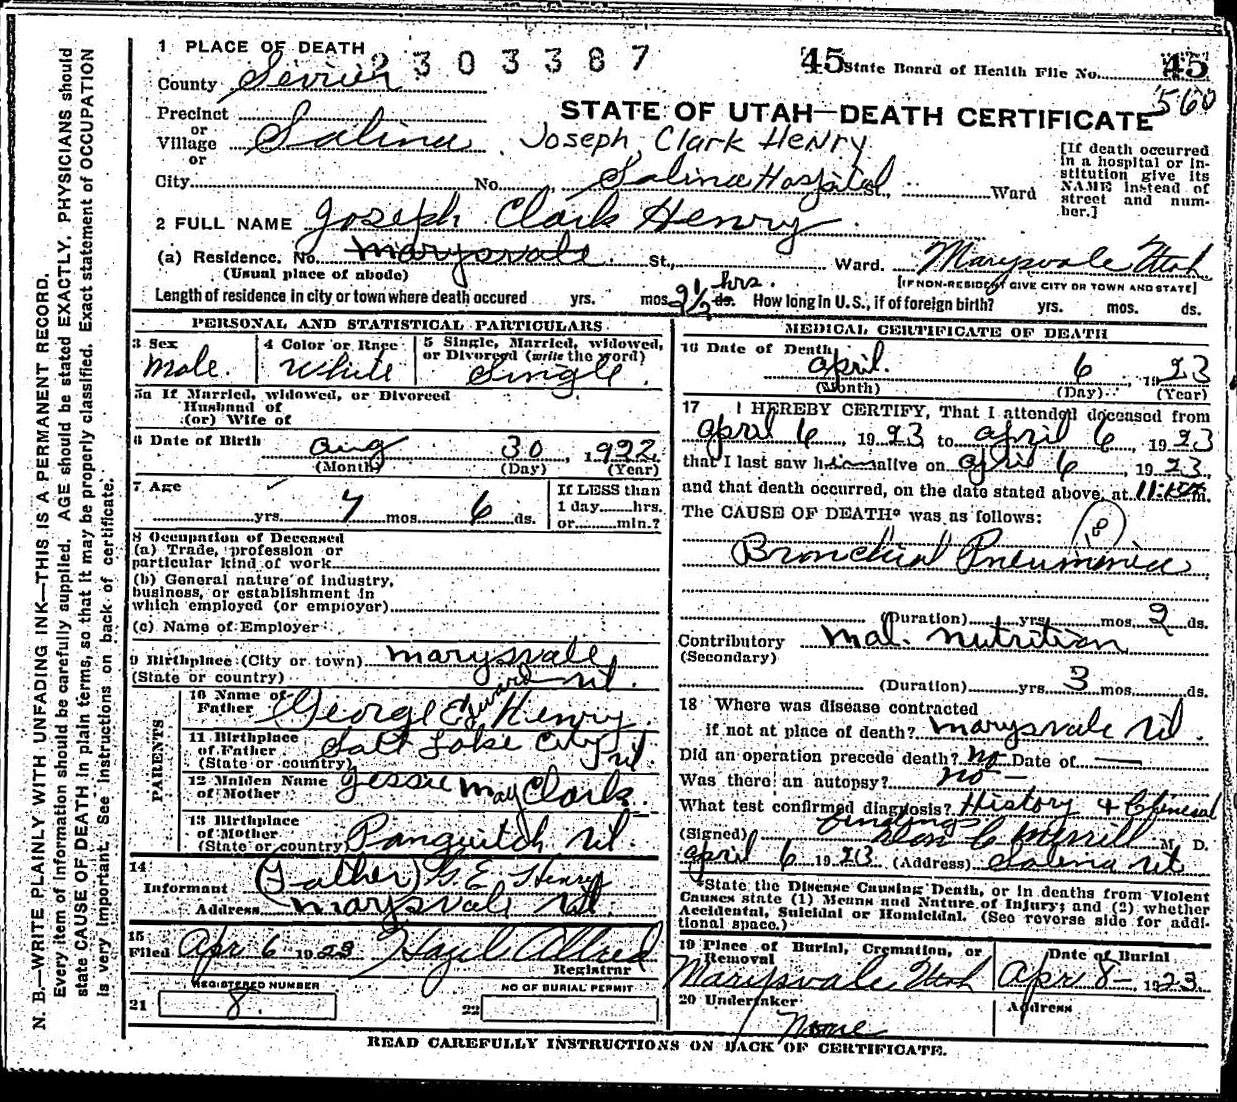 1 PLACE OF DEATH
2303387
45 State Board of Health File No. 45
County Sevier
560
STATE OF UTAH—DEATH CERTIFICATE
Precinct
or
Village Salina
or
Joseph Clark Henry
[If death occurred in a hospital or institution give its NAME instead of street and number.]
City No. Salina Hospital St., Ward
2 FULL NAME Joseph Clark Henry
(a) Residence. No. Marysvale St., Ward. Marysvale Utah
(Usual place of abode) [IF NON-RESIDENT GIVE CITY OR TOWN AND STATE]
Length of residence in city or town where death occured yrs. mos. 9½ hrs. ds. How long in U.S., if of foreign birth? yrs. mos. ds.
PERSONAL AND STATISTICAL PARTICULARS
3 Sex
Male.
4 Color or Race
White
5 Single, Married, widowed, or Divorced (write the word)
Single.
5a If Married, widowed, or Divorced
Husband of
(or) Wife of
6 Date of Birth Aug 30, 1922
(Month) (Day) (Year)
7 Age
yrs. 7 mos. 6 ds.
If LESS than
1 day hrs.
or min.?
8 Occupation of Deceased
(a) Trade, profession or
particular kind of work
(b) General nature of industry,
business, or establishment in
which employed (or employer)
(c) Name of Employer
9 Birthplace (City or town) Marysvale
(State or country) Ut.
PARENTS
10 Name of Father George Edward Henry
11 Birthplace of Father Salt Lake City Ut
(State or country)
12 Maiden Name of Mother Jessie May Clark
13 Birthplace of Mother
(State or country) Panguitch Ut
14
Informant (Father) G. E. Henry
Address Marysvale Ut.
15
Filed Apr 6 1923 Hazel Allred
Registrar
REGISTERED NUMBER
21 8.
NO OF BURIAL PERMIT
22
MEDICAL CERTIFICATE OF DEATH
16 Date of Death
April. 6, 1923
(Month) (Day) (Year)
17 I HEREBY CERTIFY, That I attended deceased from
April 6, 1923 to April 6, 1923
that I last saw him alive on April 6, 1923
and that death occurred, on the date stated above, at 11:15 m.
The CAUSE OF DEATH* was as follows:
Bronchial Pneumonia
(Duration) yrs. mos. 2 ds.
Contributory Mal. nutrition
(Secondary)
(Duration) yrs. 3 mos. ds.
18 Where was disease contracted
if not at place of death? Marysvale Ut.
Did an operation precede death? No Date of —
Was there an autopsy? no —
What test confirmed diagnosis? History & Clinical
findings
(Signed) C Merrill M. D.
April 6 1923 (Address) Salina Ut
*State the Disease Causing Death, or in deaths from Violent
Causes state (1) Means and Nature of Injury; and (2) whether
Accidental, Suicidal or Homicidal. (See reverse side for additional space.)
19 Place of Burial, Cremation, or Removal
Marysvale Utah
Date of Burial
Apr 8—, 1923
20 Undertaker
None
Address
READ CAREFULLY INSTRUCTIONS ON BACK OF CERTIFICATE.
N. B.—WRITE PLAINLY WITH UNFADING INK—THIS IS A PERMANENT RECORD.
Every item of information should be carefully supplied. AGE should be stated EXACTLY. PHYSICIANS should
state CAUSE OF DEATH in plain terms, so that it may be properly classified. Exact statement of OCCUPATION
is very important. See instructions on back of certificate.